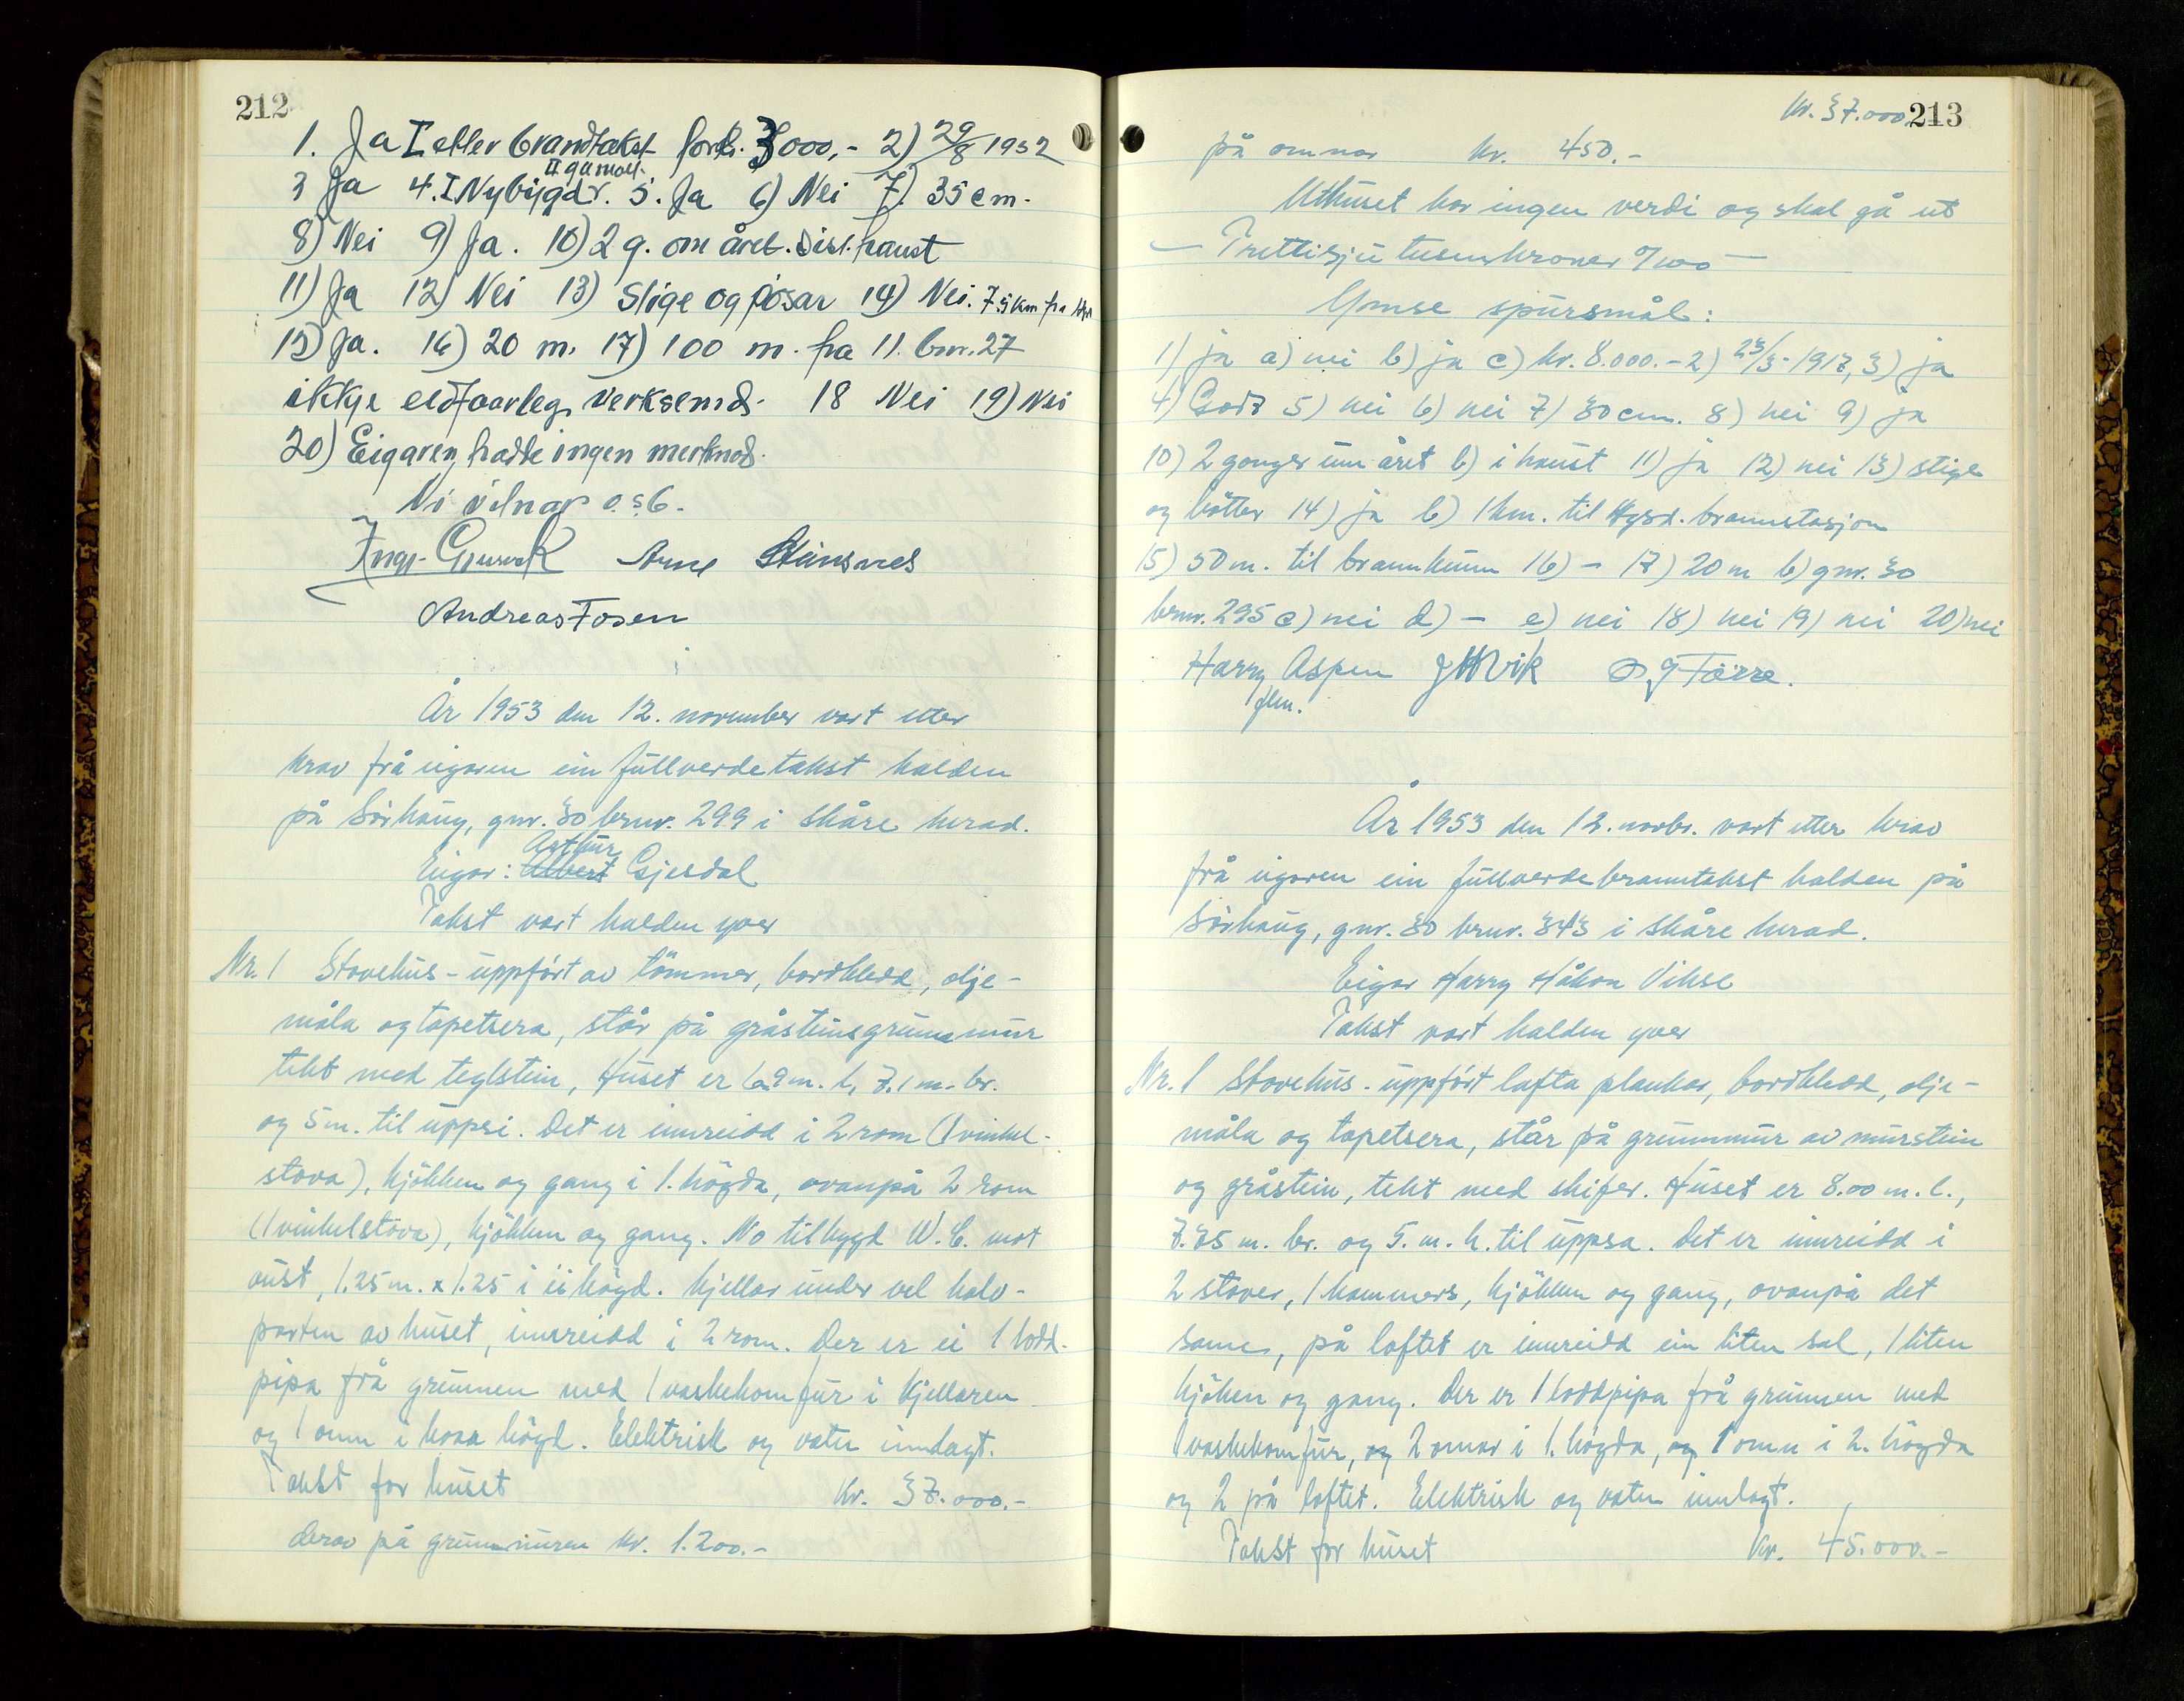 212
1. Ja I eller brandtakst for kr. 3000,- 2) 29/8 1952
II gamalt.
3 Ja 4. I Nybygdr. 5. Ja 6) Nei 7) 35 cm.
8) Nei 9) Ja. 10) 2 g. om året. Sist. haust
11) Ja 12) Nei 13) Stige og pøsar 14) Nei. 7.5 km fra
15) Ja. 16) 20 m. 17) 100 m. fra 11. bnr. 27
ikkje eldfaarleg verksemd. 18 Nei 19) Nei
20) Eigaren hadde ingen merknad.
Vi vilnar o.s.b.
Arne Steinsnes
Andreas Fosen
År 1953 den 12. november vart etter
krav frå eigaren ein fullverdetakst halden
på Sørhaug, gnr. 30 brnr. 299 i Skåre herad.
Arthur
Eigar: Albert Gjesdal
Takst vart halden yver
Nr. 1 Stovehus - uppført av tømmer, bordkledd, olje-
måla og tapetsera, står på gråsteinsgrunnmur
tekt med teglstein, Huset er 6.9 m. l, 7.1 m. br.
og 5 m. til uppsi. Det er innreidd i 2 rom (1 vinkel-
stova), kjøkken og gang i 1. høgda, ovanpå 2 rom
(1 vinkelstova), kjøkken og gang. No tilbygd W.C. mot
aust, 1.25 m. x 1.25 i ei høgd. Kjellar under vel halv-
parten av huset, innreidd i 2 rom. Der er ei 1 lodd.
pipa frå grunnen med 1 vaskekomfur i kjellaren
og 1 omn i kvar høgd. Elektrisk og vatn innlagt.
Takst for huset Kr. 37.000.-
derav på grunnmuren kr. 1.200.-
kr. 37.000 213
på omnar kr. 450.-
Uthuset har ingen verdi og skal gå ut
- Trettisju tusen kroner 0/100 -
Ymse spursmål:
1) ja a) nei b) ja c) kr. 8.000.- 2) 23/3-1917, 3) ja
4) Godt 5) nei 6) nei 7) 30 cm. 8) nei 9) ja
10) 2 gonger um året b) i haust 11) ja 12) nei 13) stige
og bøtter 14) ja b) 1 km. til Hgsd. brannstasjon
15) 50 m. til brannkum 16) - 17) 20 m b) gnr. 30
brnr. 295 c) nei d) - e) nei 18) nei 19) nei 20) nei
Harry Aspen J H Vik O G Færre.
flm.
År 1953 den 12. novbr. vart etter krav
frå eigaren ein fullverdebranntakst halden på
Sørhaug, gnr. 30 brnr. 343 i Skåre herad.
Eigar Harry Håkon Vikse
Takst vart halden yver
Nr. 1 Stovehus - uppført lafta plankar, bordkledd, olje-
måla og tapetsera, står på grunnmur av murstein
og gråstein, tekt med skifer. Huset er 8.00 m. l.,
7.85 m. br. og 5. m. h. til uppsa. Det er innreidd i
2 stover, 1 kammers, kjøkken og gang, ovanpå det
same, på loftet er innreidd ein liten sal, 1 liten
kjøken og gang. Der er 1 loddpipa frå grunnen med
1 vaskekomfur, og 2 omnar i 1. høgda, og 1 omn i 2. høgda
og 2 på loftet. Elektrisk og vatn innlagt.
Takst for huset Kr. 45.000.-